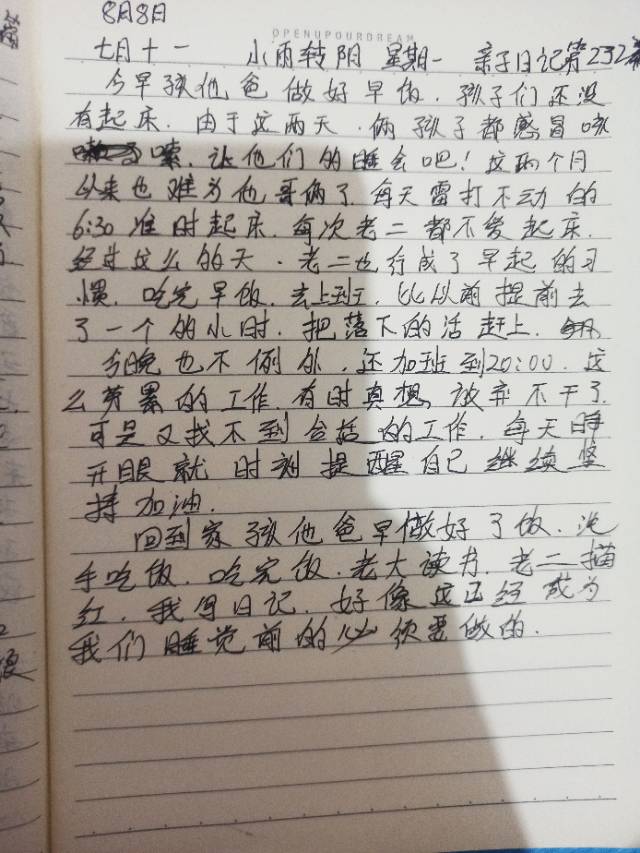 8月8日
OPENUPOURDREAM
七月十一 小雨转阴 星期一 亲子日记第232篇
今早孩他爸做好早饭.孩子们还没
有起床.由于这两天.俩孩子都感冒咳
嗽.让他们的睡会吧!这两个月
以来也难为他哥俩了.每天雷打不动的
6:30准时起床.每次老二都不爱起床.
经过这么的天.老二也行成了早起的习
惯.吃完早饭.去上班.比以前提前去
了一个的小时.把落下的活赶上.
今晚也不例外.还加班到20:00.这
么劳累的工作.有时真想放弃不干了.
可是又找不到合括的工作.每天睁
开眼就时刻提醒自已继续坚
持加油.
回到家孩他爸早做好了饭.洗
手吃饭.吃完饭.老大读书.老二描
红.我写日记.好像这已经成为
我们睡觉前的必须要做的.